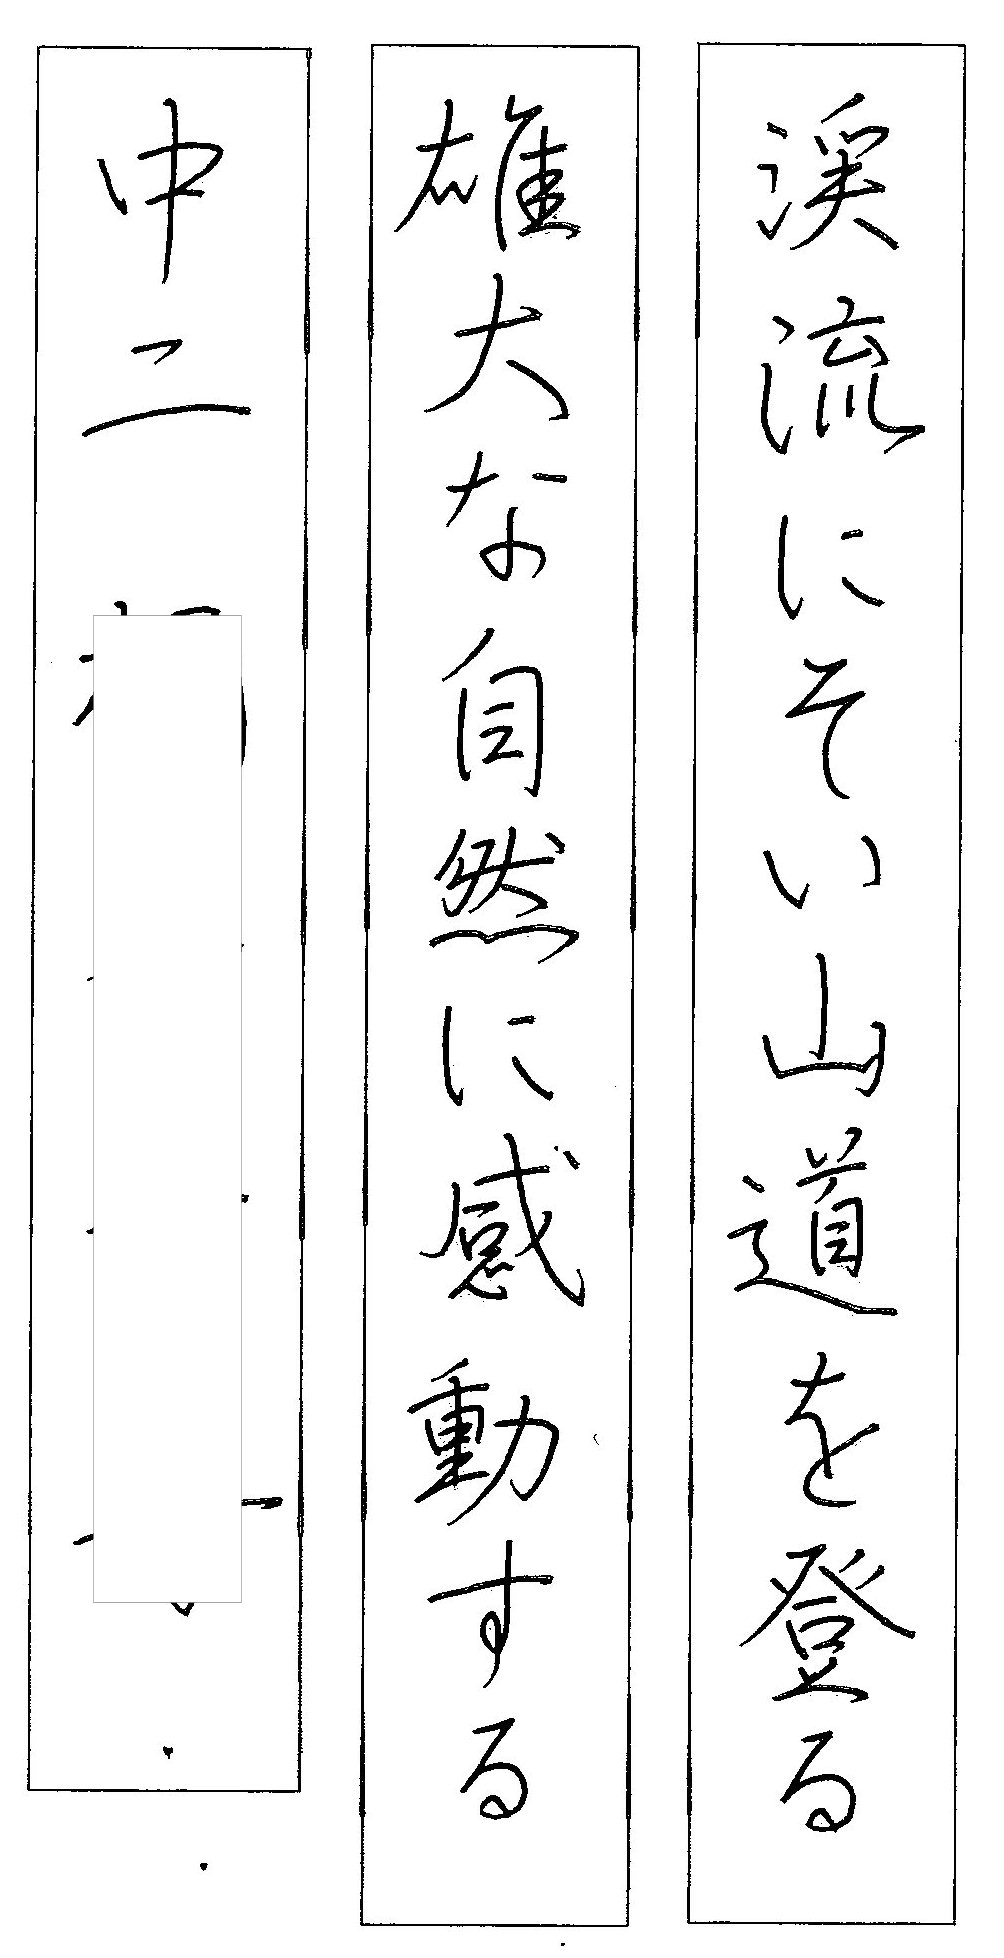 渓流にそい山道を登る
雄大な自然に感動する
中二